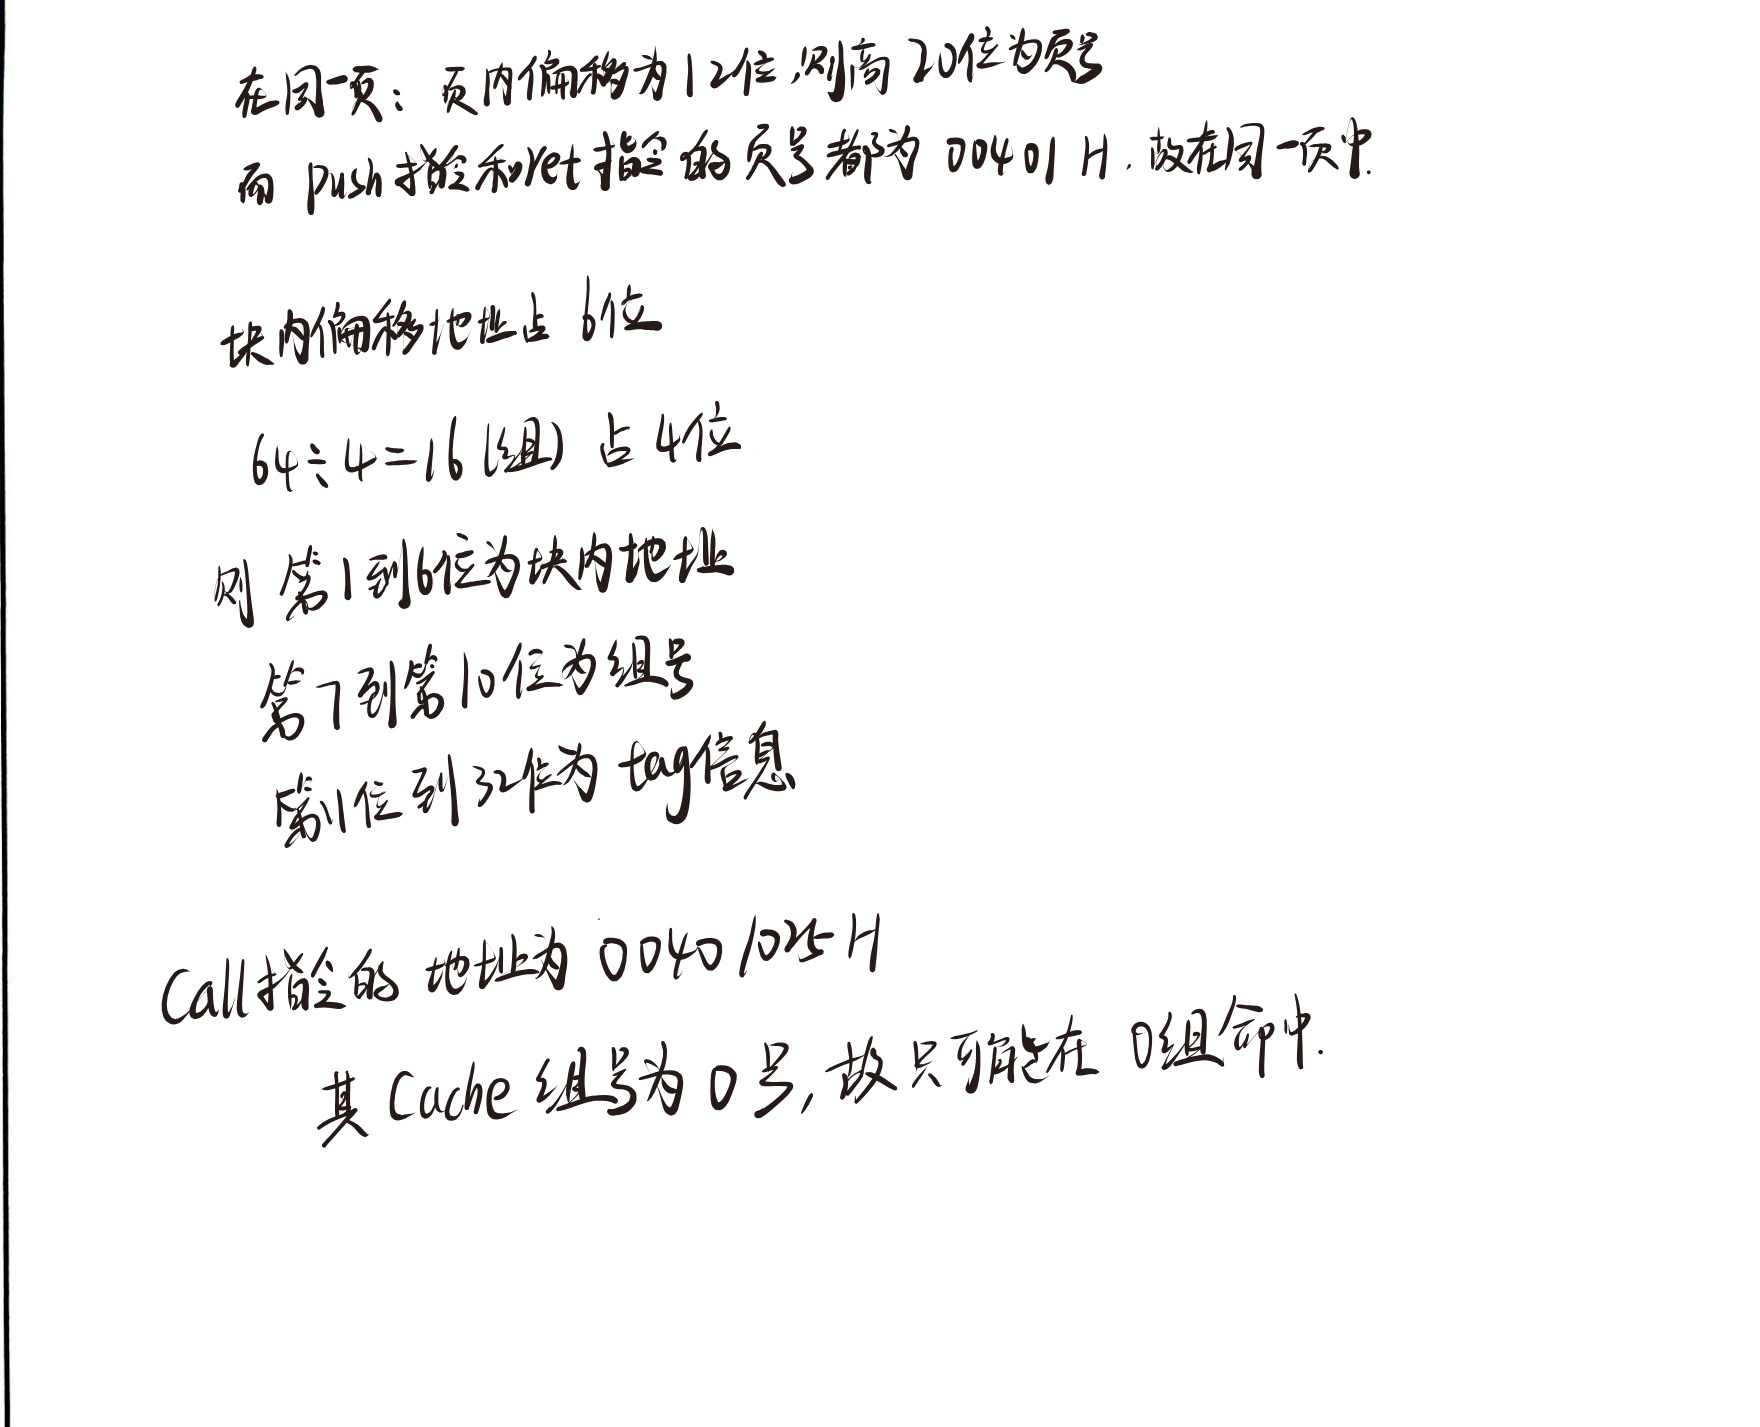 在同一页：页内偏移为12位,则高20位为页号
而 push指令和ret指令的页号都为 00401H，故在同一页中.
块内偏移地址占 6位
64÷4=16(组) 占4位
则 第1到6位为块内地址
第7到第10位为组号
第11位到32位为tag信息
Call指令的 地址为 00401025H
其Cache组号为0号,故只可能在 0组命中.